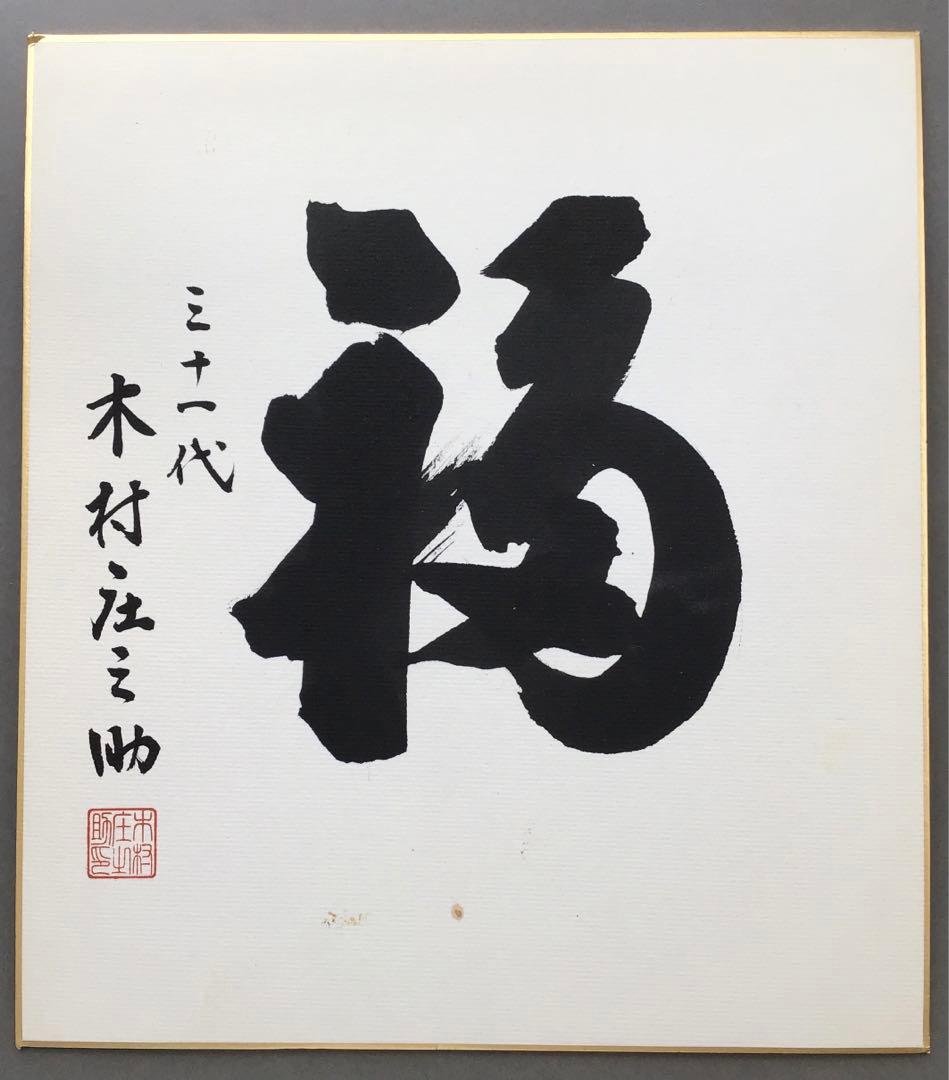 福
三十一代
木村庄之助
木村
庄之
助印